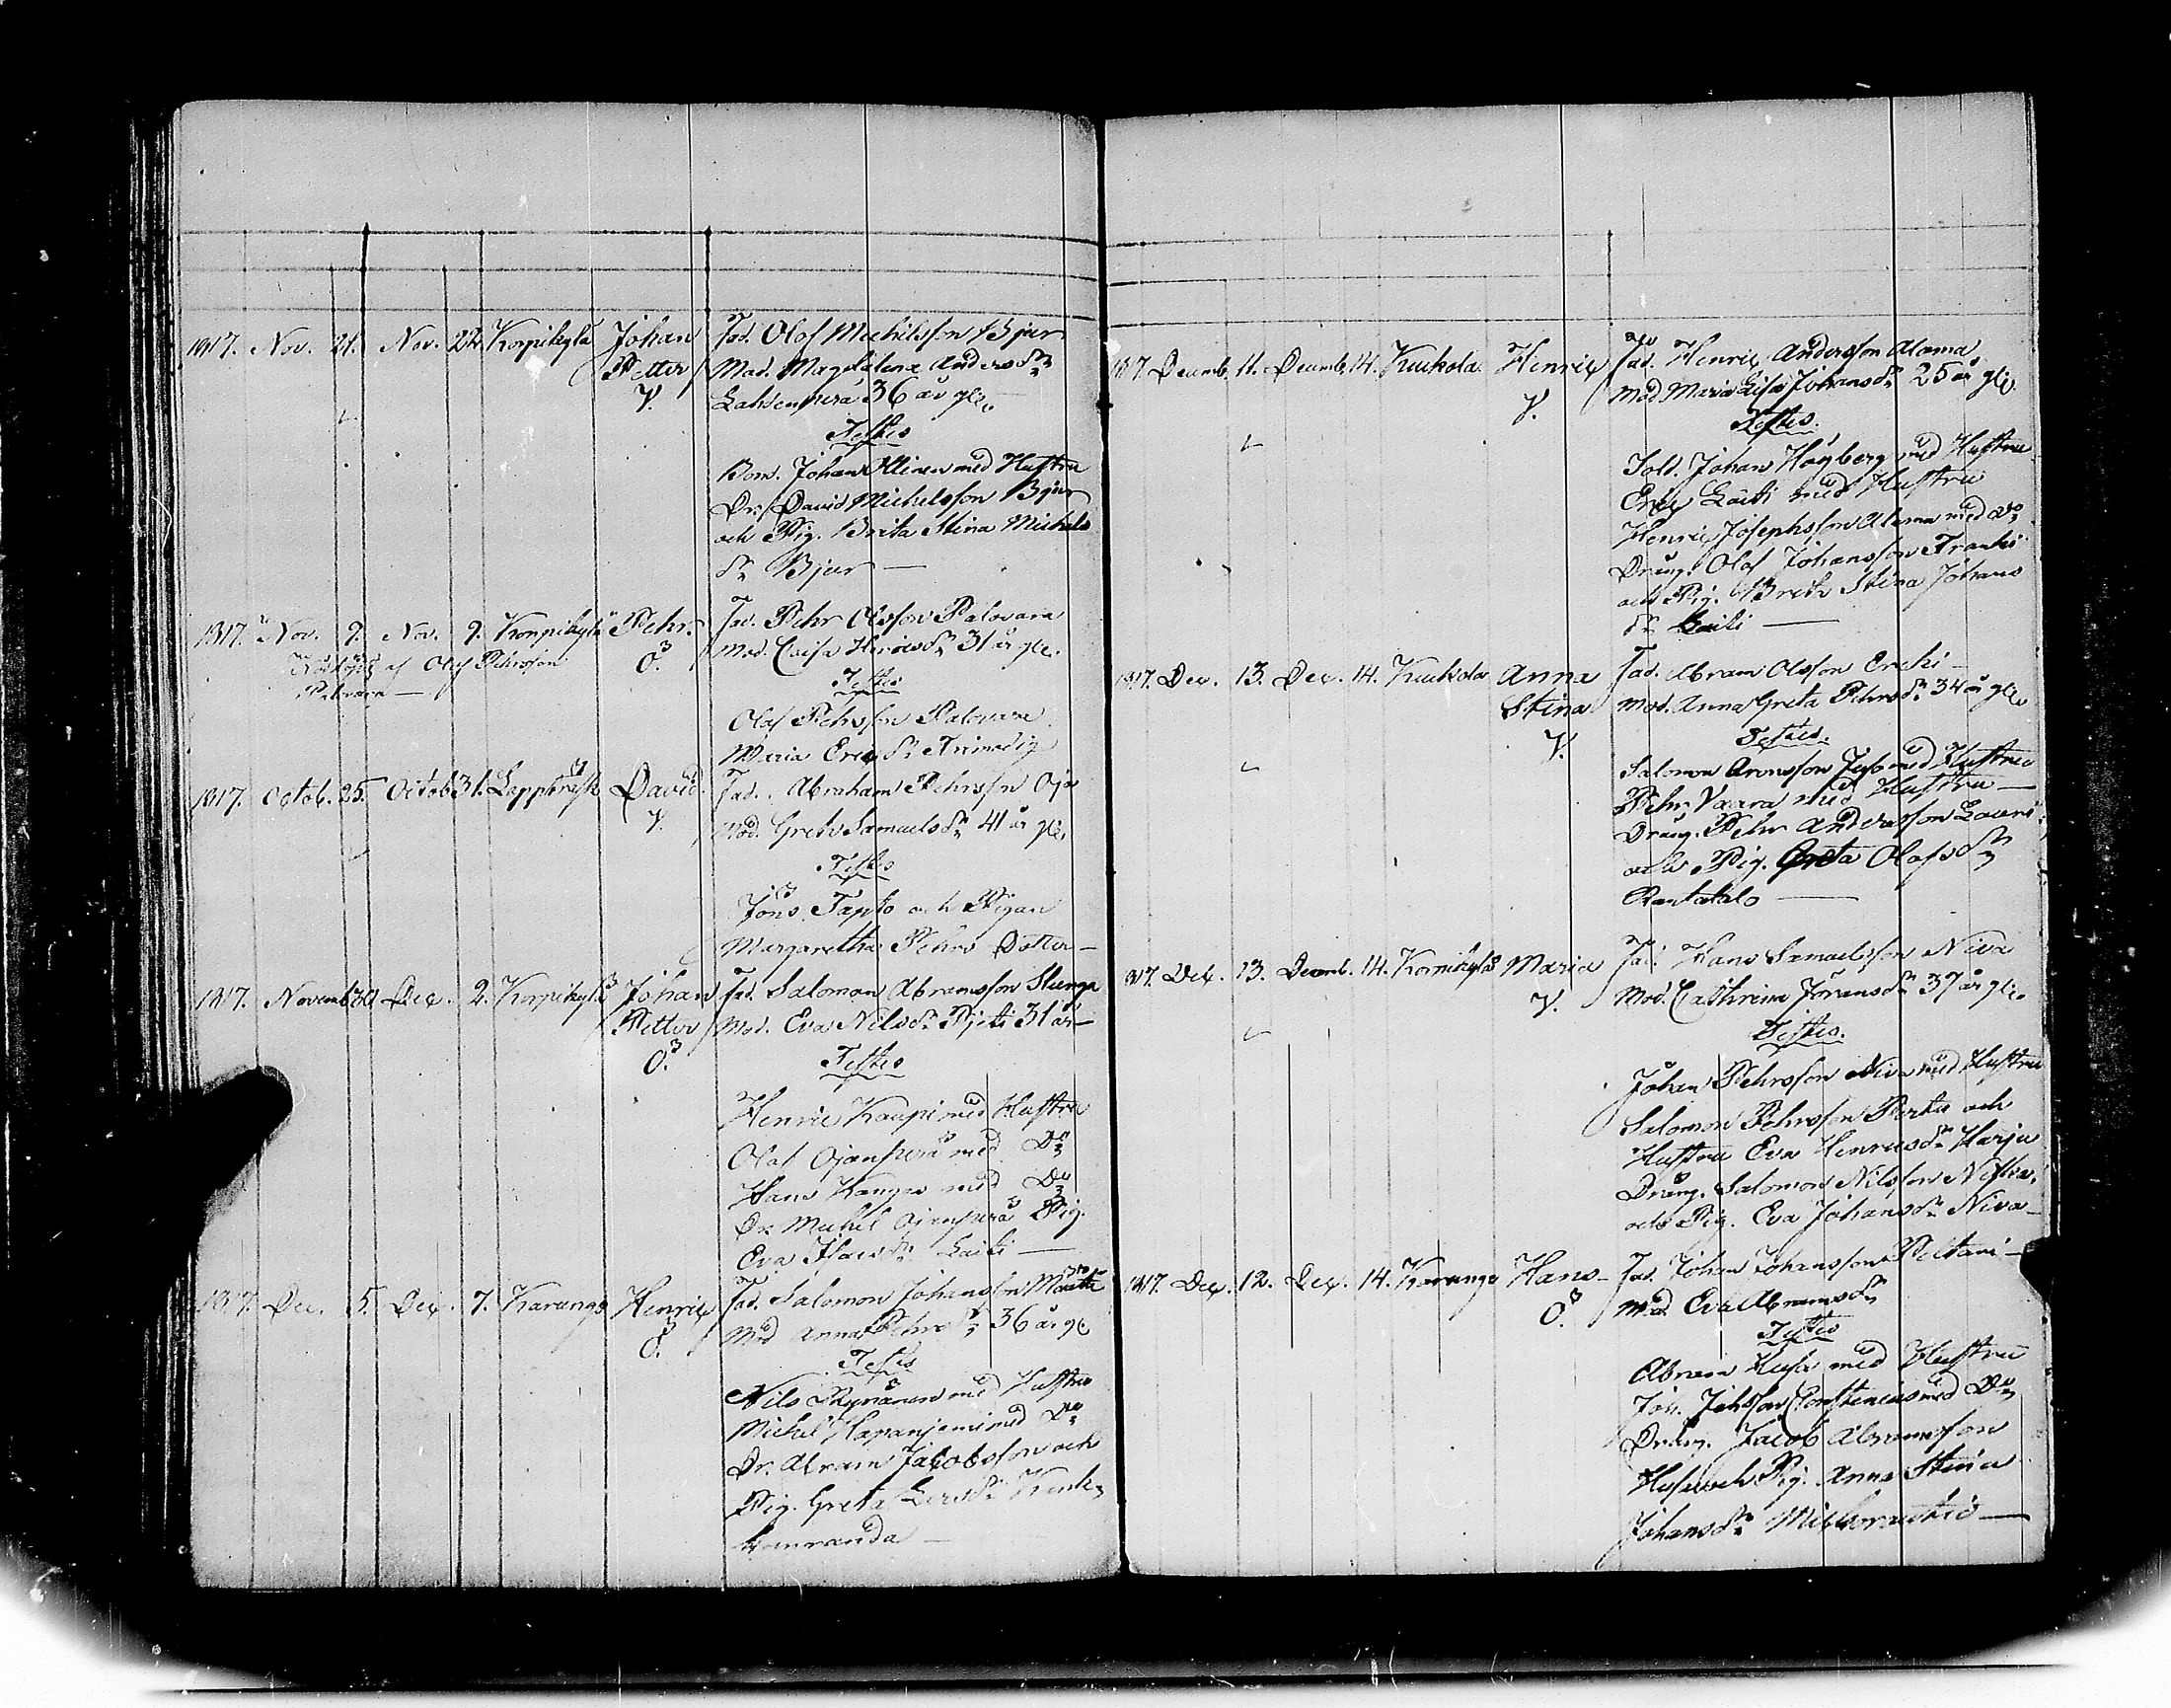 1817. Nov. 21. Nov. 22. Korpikylä Johan Fad. Olof Michelsson Bjur
Petter Mod. Magdalena Andersdr
V. Lahsenperä 36 år gl.
Testes
Bond. Johan med Hustru
Dr. David Michelsson Bjur
och Pig. Brita Stina Michels
dr Bjur —
1817. Nov. 9. Nov. 9. Korpikylä Pehr. Fad. Pehr Olsson Palovara
Nöddöpt af Olof Pehrsson O. Mod. Caisa Henricsdr 31 år gl.
Palovara — Testes
Olof Pehrsson Palovara
Maria Ericsdr
1817. Octob. 25. Octob 31. Lappträsk David. Fad. Abraham Pehrsson Oja
V. Mod. Greta Samuelsdr 41 år gl.
Testes
Jöns Tapio och Pigan
Margaretha Pehrs Dotter —
1817. Novemb 30 Dec. 2. Korpikylä Johan Fad. Salomon Abramsson Stunga
Petter Mod. Eva Nilsdr 31 år —
O. Testes
Henric Kauppi med Hustru
Olof Ojanperä med Do
Hans Kangas med Do
Dr. Michel Ojanperä Pig.
Eva Isacsdr Laiti —
1817. Dec. 5. Dec. 7. Karungi Henric Fad. Salomon Johansson
O. Mod Anna Pehrsdr 36 år gl
Testes
Nils Rynänen med Hustru
Michel Hapanjemi med Do
Dr. Abram Jacobsson och
Pig. Greta Larsdr
1817. Decemb. 11. Decemb. 14. Kuckola Henric Fad. Henric Andersson Alama
V. Mod. Maria Lisa Johansdr 25 år gl.
Testes.
Sold. Johan Högberg med Hustru
Eric Laiti med Hustru
Henric Josephsson Alama med Do
Dräng. Olof Johansson Franki
och Pig. Brita Stina Johans
dr Laiti —
1817. Dec. 13. Dec. 14. Kuckola Anna Fad. Abram Olsson Erchi —
Stina Mod. Anna Greta Pehrsdr 34 år gl.
V. Testes.
Salomon Aronsson Juso med Hustru
Pehr Vaara med Hustru —
Dräng. Pehr Andersson Lauri
och Pig. Greta Olofsdr
Rantatalo —
1817. Dec. 13. Decemb. 14. Korpikylä Maria Fad. Hans Samuelsson Niva
V. Mod. Cathrina Göransdr 37 år gl.
Testes.
Johan Pehrsson Niva med Hustru
Salomon Pehrsson och
Hustru Eva Henricsdr Harju
Dräng. Salomon Nilsson
och Pig. Eva Johansdr Niva —
1817. Dec. 12. Dec. 14. Karungi Hans — Fad. Johan Johansson Peltari —
O. Mod. Eva Abramsdr
Testes
Abram Husa med Hustru
Joh. Johsson med Do
Dräng. Jacob Abramsson
Husa och Pig. Anna Stina
Johansdr —